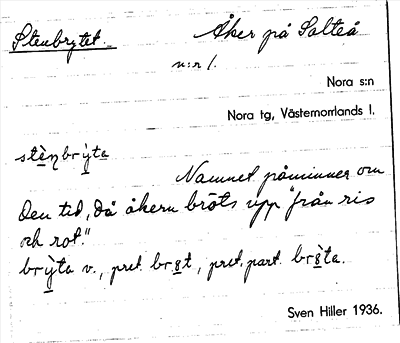 Stenbrytet. Åker på Salteå
n:r 1.
Nora s:n
Nora tg, Västernorrlands l.
stènbrỳta
Namnet påminner om
den tid, då åkern bröts upp "från ris
och rot."
brỳta v., pret. brøt, pret. part. brø̀ta.
Sven Hiller 1936.